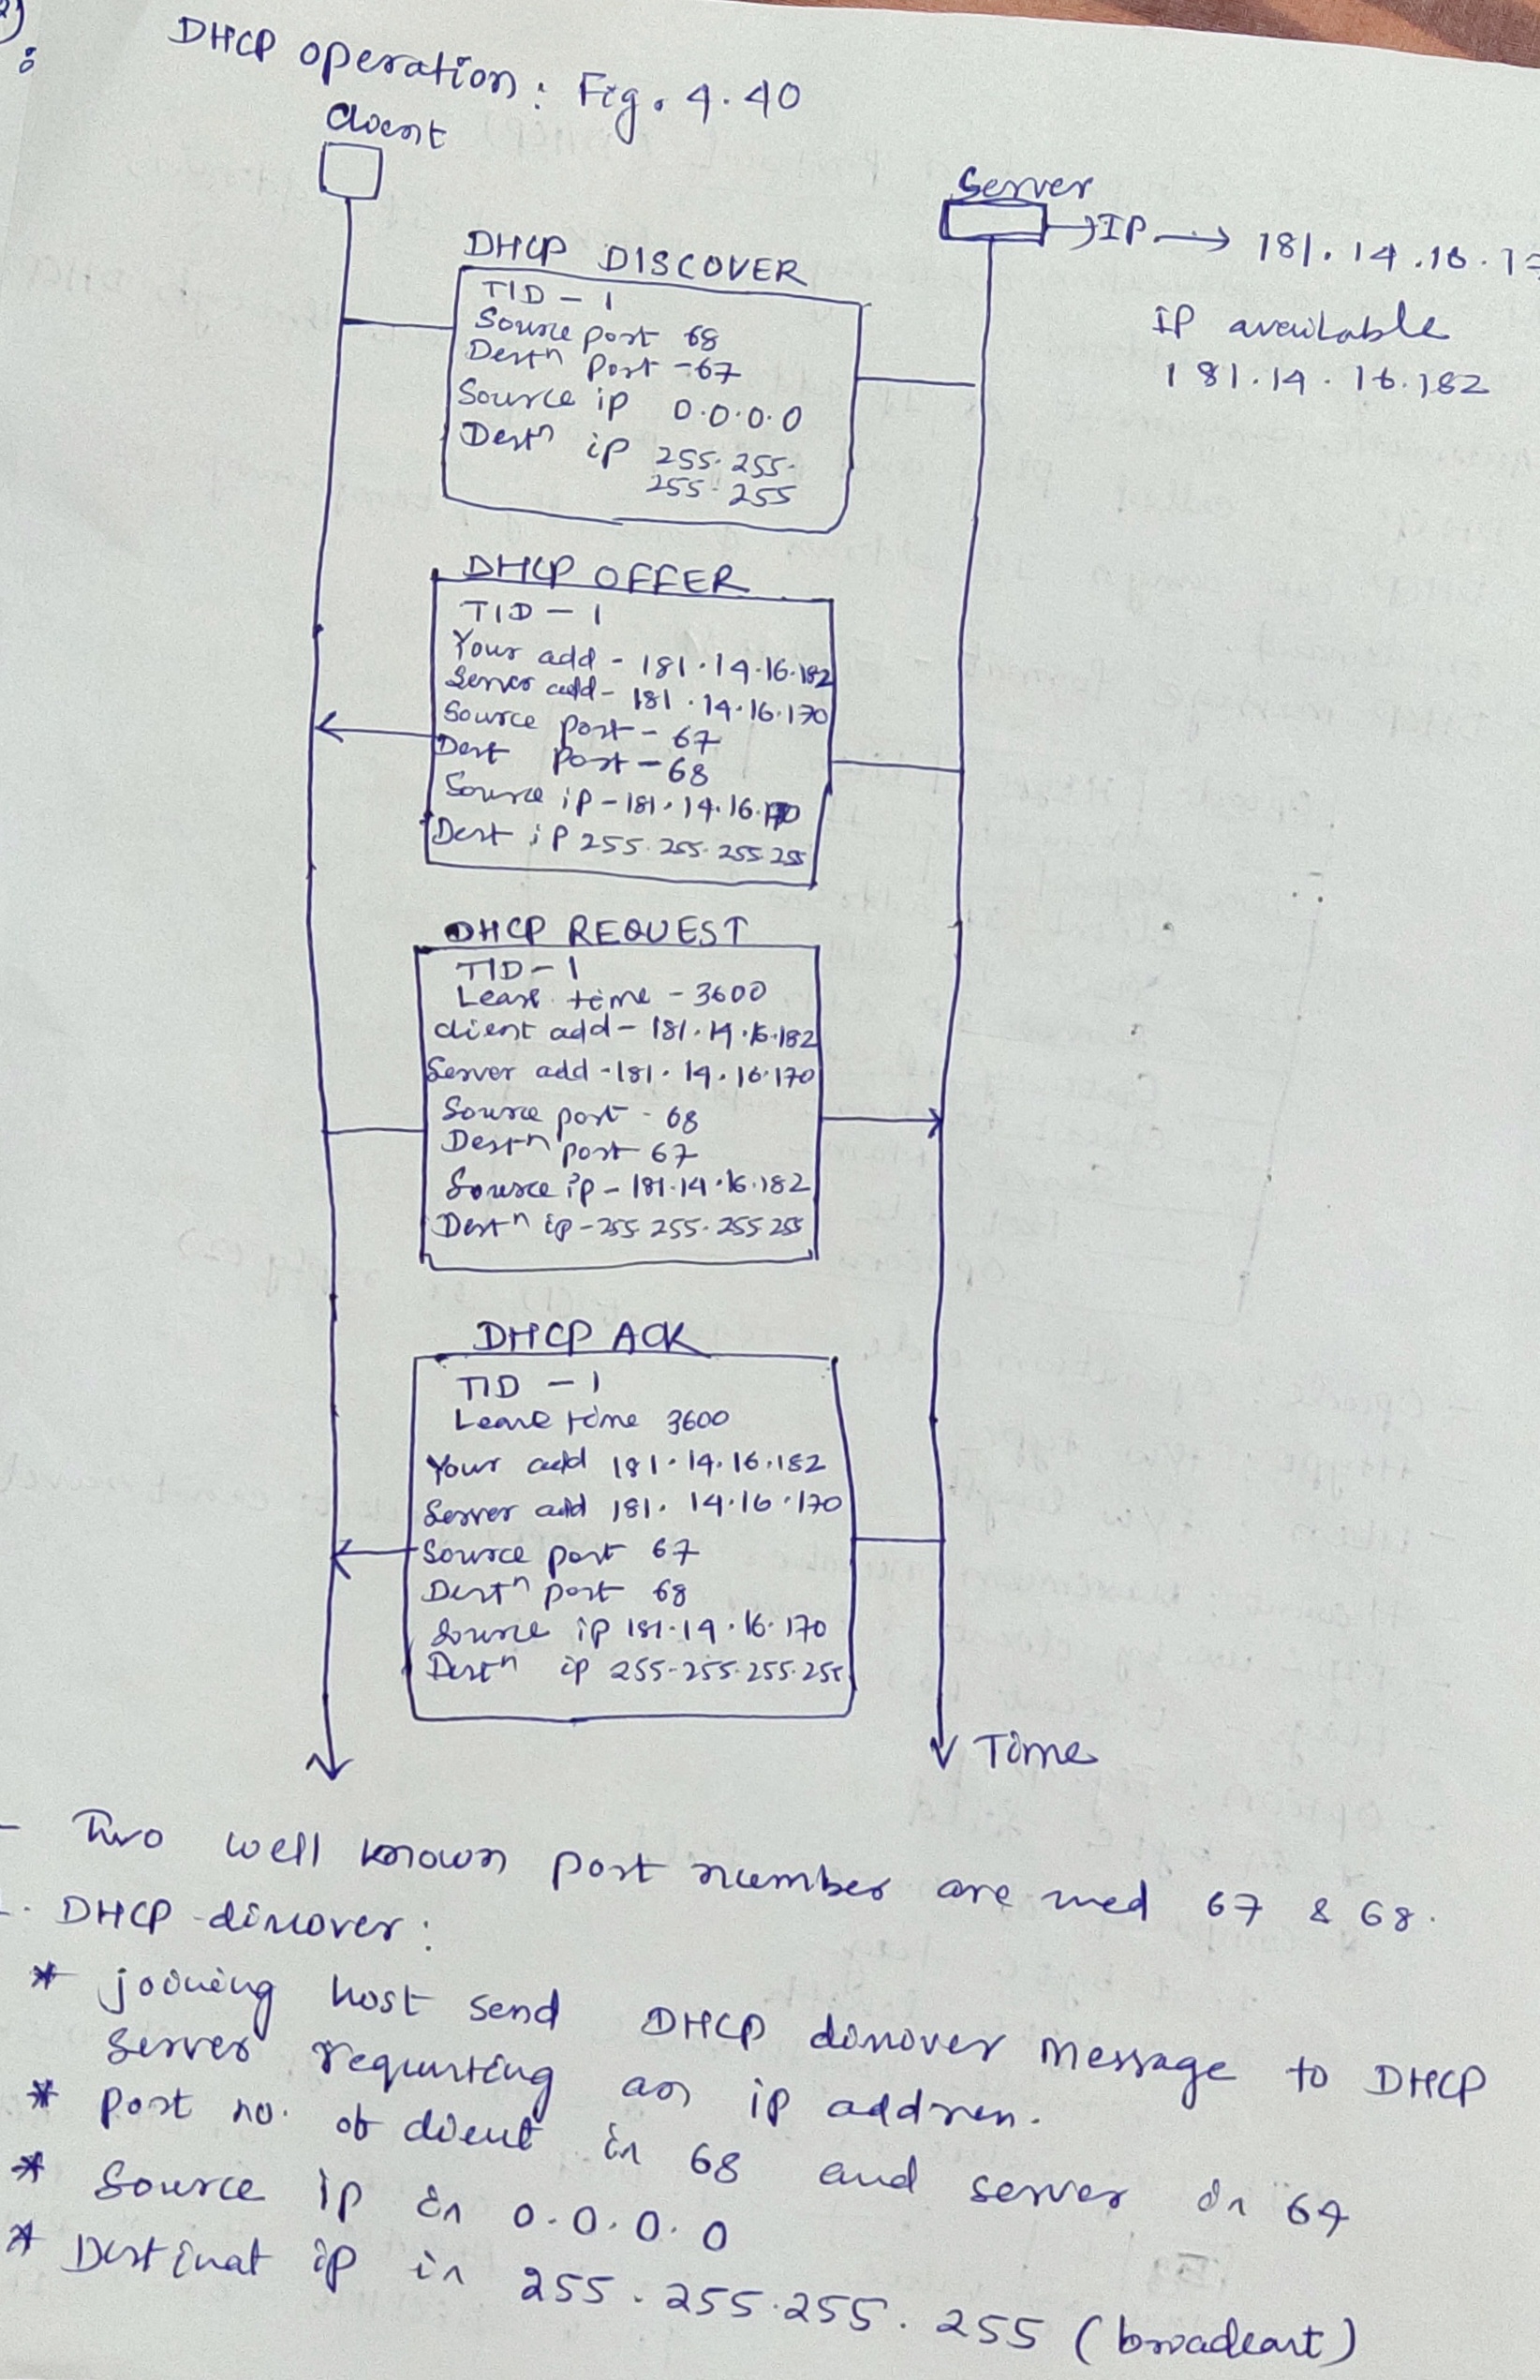 DHCP operation: Fig. 4.40
Client
Server
IP → 181.14.16.17
IP available
181.14.16.182
DHCP DISCOVER
TID - 1
Source port 68
Destn port - 67
Source ip 0.0.0.0
Destn ip 255.255.
255.255
DHCP OFFER
TID - 1
Your add - 181.14.16.182
Server add - 181.14.16.170
Source port - 67
Dest port - 68
Source ip - 181.14.16.170
Dest ip 255.255.255.255
DHCP REQUEST
TID - 1
Lease time - 3600
client add - 181.14.16.182
Server add - 181.14.16.170
Source port - 68
Destn port 67
Source ip - 181.14.16.182
Destn ip - 255.255.255.255
DHCP ACK
TID - 1
Lease time 3600
Your add 181.14.16.182
Server add 181.14.16.170
Source port 67
Destn port 68
Source ip 181.14.16.170
Destn ip 255.255.255.255
Time
- Two well known port number are used 67 & 68.
- DHCP discover:
* joining host send DHCP discover message to DHCP
server requesting an ip address.
* port no. of client is 68 and server is 67
* Source ip is 0.0.0.0
* Destinat ip is 255.255.255.255 (broadcast)